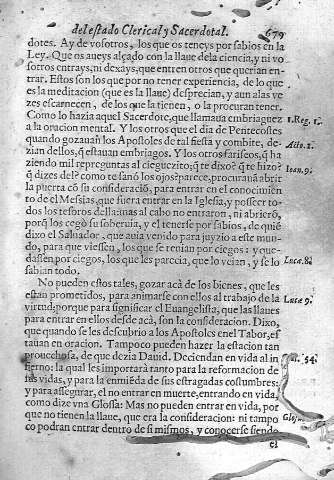 del estado Clerical y Sacerdotal. 679
dotes. Ay de vosotros, los que os teneys por sabios en la
Ley. Que os aueys alçado con la llaue de la ciencia, y ni vo
sotros entrays, ni dexays, que entren otros que querian en-
trar. Estos son los que por no tener experiencia, de lo que
es la meditacion (que es la llaue) desprecian, y aun alas ve
zes escarnecen, de los que la tienen, o la procuran tener.
Como lo hazia aquel Sacerdote, que llamaua embriaguez 1. Reg. 1.
a la oracion mental. Y los otros que el dia de Pentecostes
quando gozauã los Apostoles de tal fiesta y combite, de- Acto. 2.
zian dellos, q̃ estauan embriagos. Y los otros fariseos, q̃ ha
ziendo mil repreguntas al cieguezito; q̃ te dixo? q̃ te hizo? Ioan. 9.
q̃ dizes del? como te sanó los ojos? parece, procurauã abrir
la puerta cõ su consideraciõ, para entrar en el conocimien
to de el Messias, que fuera entrar en la Iglesia, y posseer to-
dos los tesoros della: mas al cabo no entraron, ni abrierõ,
porq̃ los cegò su soberuia, y el tenerse por sabios, de quiẽ
dixo el Saluador, que auia venido para juyzio a este mun-
do, para que viessen, los que se tenian por ciegos: y que-
dassen por ciegos, los que les parecia, que lo veian, y se lo Luca. 8.
sabian todo.
No pueden estos tales, gozar acà de los bienes, que les
estan prometidos, para animarse con ellos al trabajo de la Luca 9.
virtud: porque para significar el Euangelista, que las llaues
para entrar en ellos desde acà, son la consideracion. Dixo,
que quando se les descubrio a los Apostoles en el Tabor, es
tauan en oracion. Tampoco pueden hazer la estacion tan
prouechosa, de que dezia Dauid. Deciendan en vida al in 54.
fierno: la qual les importarà tanto para la reformacion de
sus vidas, y para la enmiẽda de sus estragadas costumbres:
y para assegurar, el no entrar en muerte, entrando en vida,
como dize vna Glossa: Mas no pueden entrar en vida, por
que no tienen la llaue, que era la consideracion: ni tampo
co podran entrar dentro de si mismos, y conocerse siendo
el